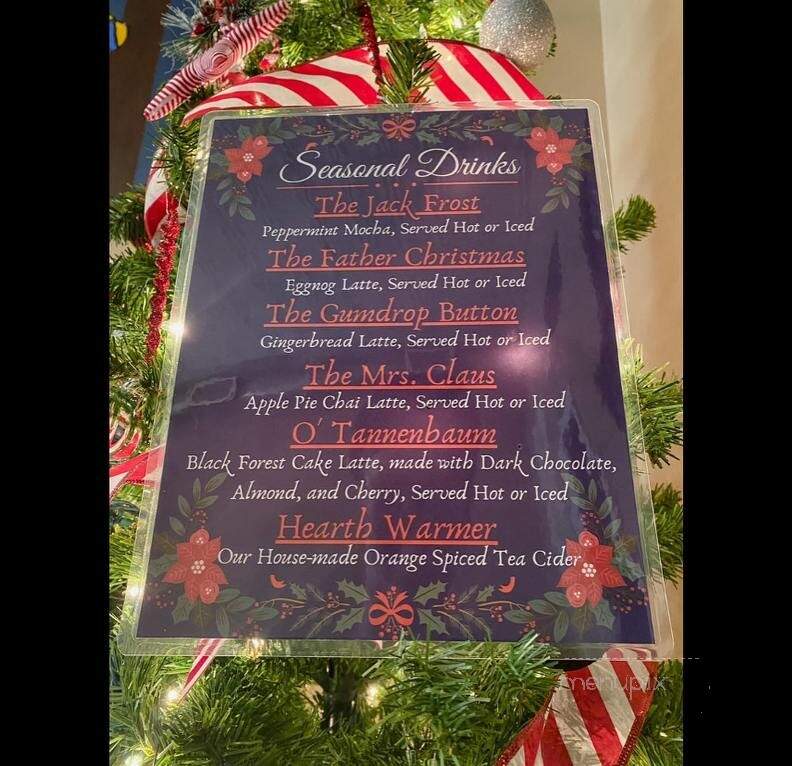 Seasonal Drinks
The Jack Frost
Peppermint Mocha, Served Hot or Iced
The Father Christmas
Eggnog Latte, Served Hot or Iced
The Gumdrop Button
Gingerbread Latte, Served Hot or Iced
The Mrs. Claus
Apple Pie Chai Latte, Served Hot or Iced
O' Tannenbaum
Black Forest Cake Latte, made with Dark Chocolate,
Almond, and Cherry, Served Hot or Iced
Hearth Warmer
Our House-made Orange Spiced Tea Cider
menupix